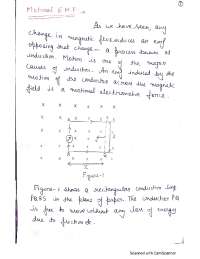 Motional E.M.F.
As we have seen, any
change in magnetic flux induces an emf
opposing that change - A process known as
induction. Motion is one of the major
causes of induction. An emf induced by the
motion of the conductor across the magnetic
field is a motional electromotive force.
Figure-1
Figure-1 shows a rectangular conductor loop
PQRS in the plane of paper. The conductor PQ
is free to move without any loss of energy
due to friction etc.
Scanned with CamScanner